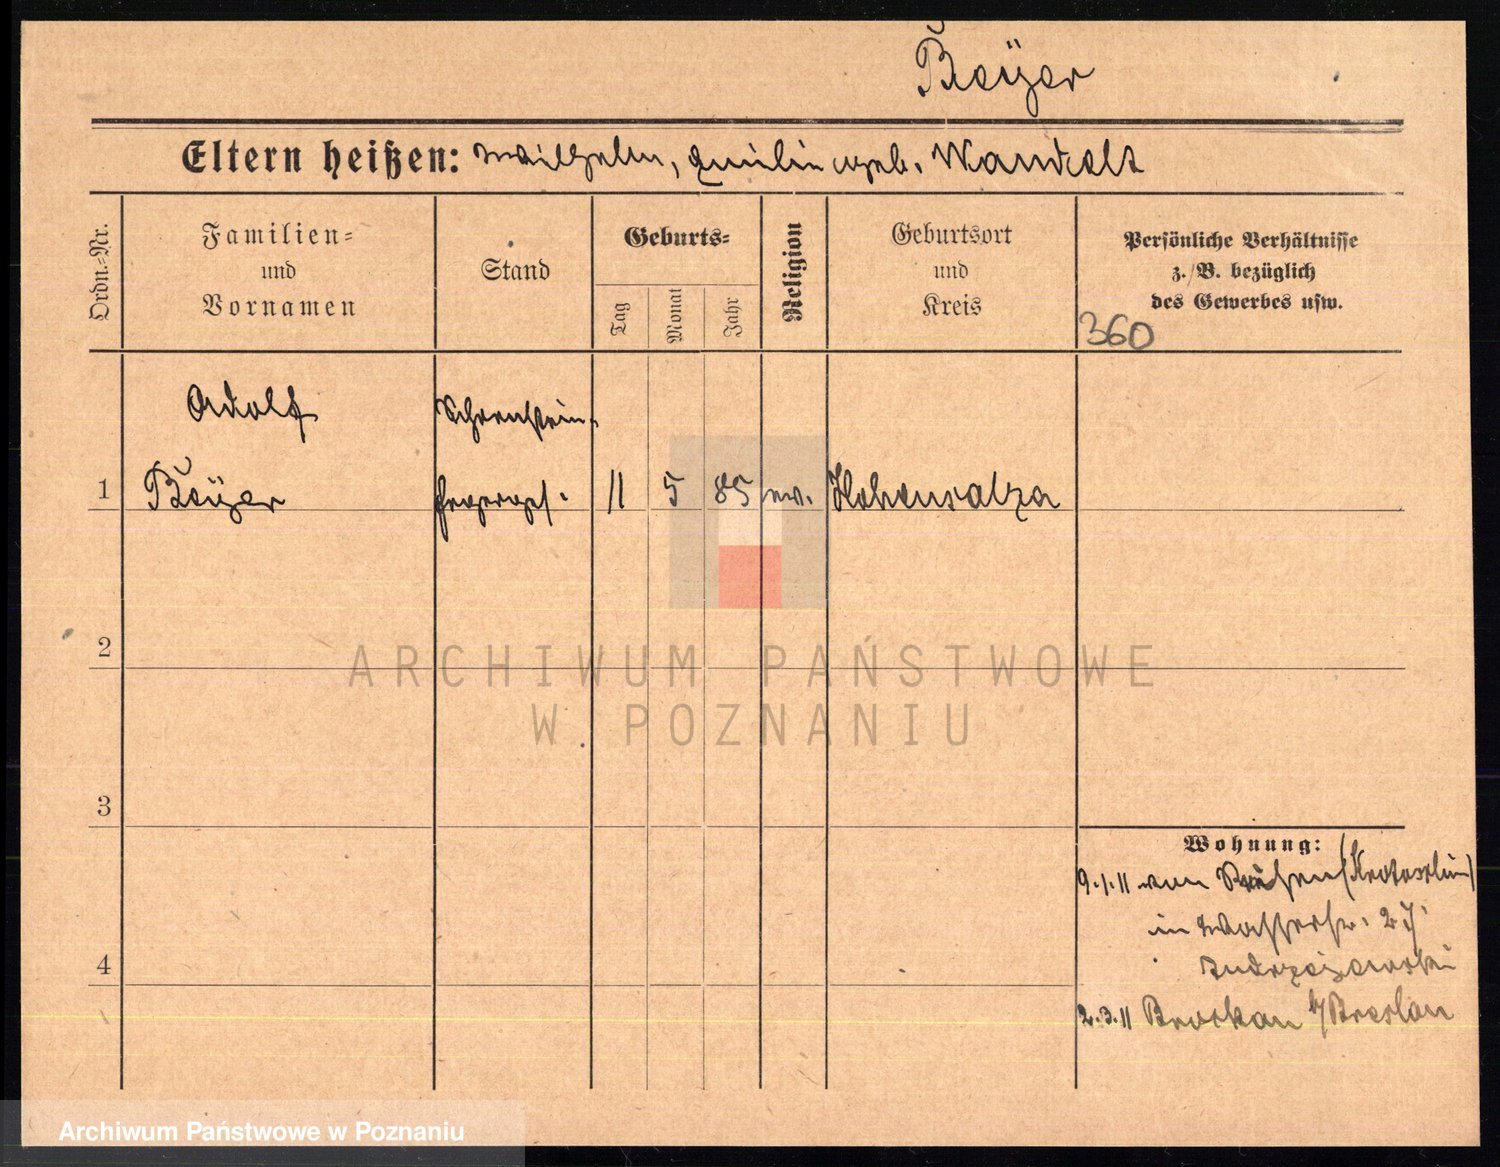 Beÿer
Eltern heißen: Wilhelm, Emilie geb. Wandelt
Ordn.-Nr.
Familien-
und
Vornamen
Stand
Geburts-
Tag
Monat
Jahr
Religion
Geburtsort
und
Kreis
Persönliche Verhältnisse
z. B. bezüglich
des Gewerbes usw.
360
Adolf
Schornstein-
1 Beÿer fegerges. 11 5 85 ev. Hohensalza
2
3
4
Wohnung:
9.1.11 von (Krotoschin)
in Wasserstr. 27
Andrzejewski
2.3.11 Brockau b/Breslau
ARCHIWUM PAŃSTWOWE
W POZNANIU
Archiwum Państwowe w Poznaniu